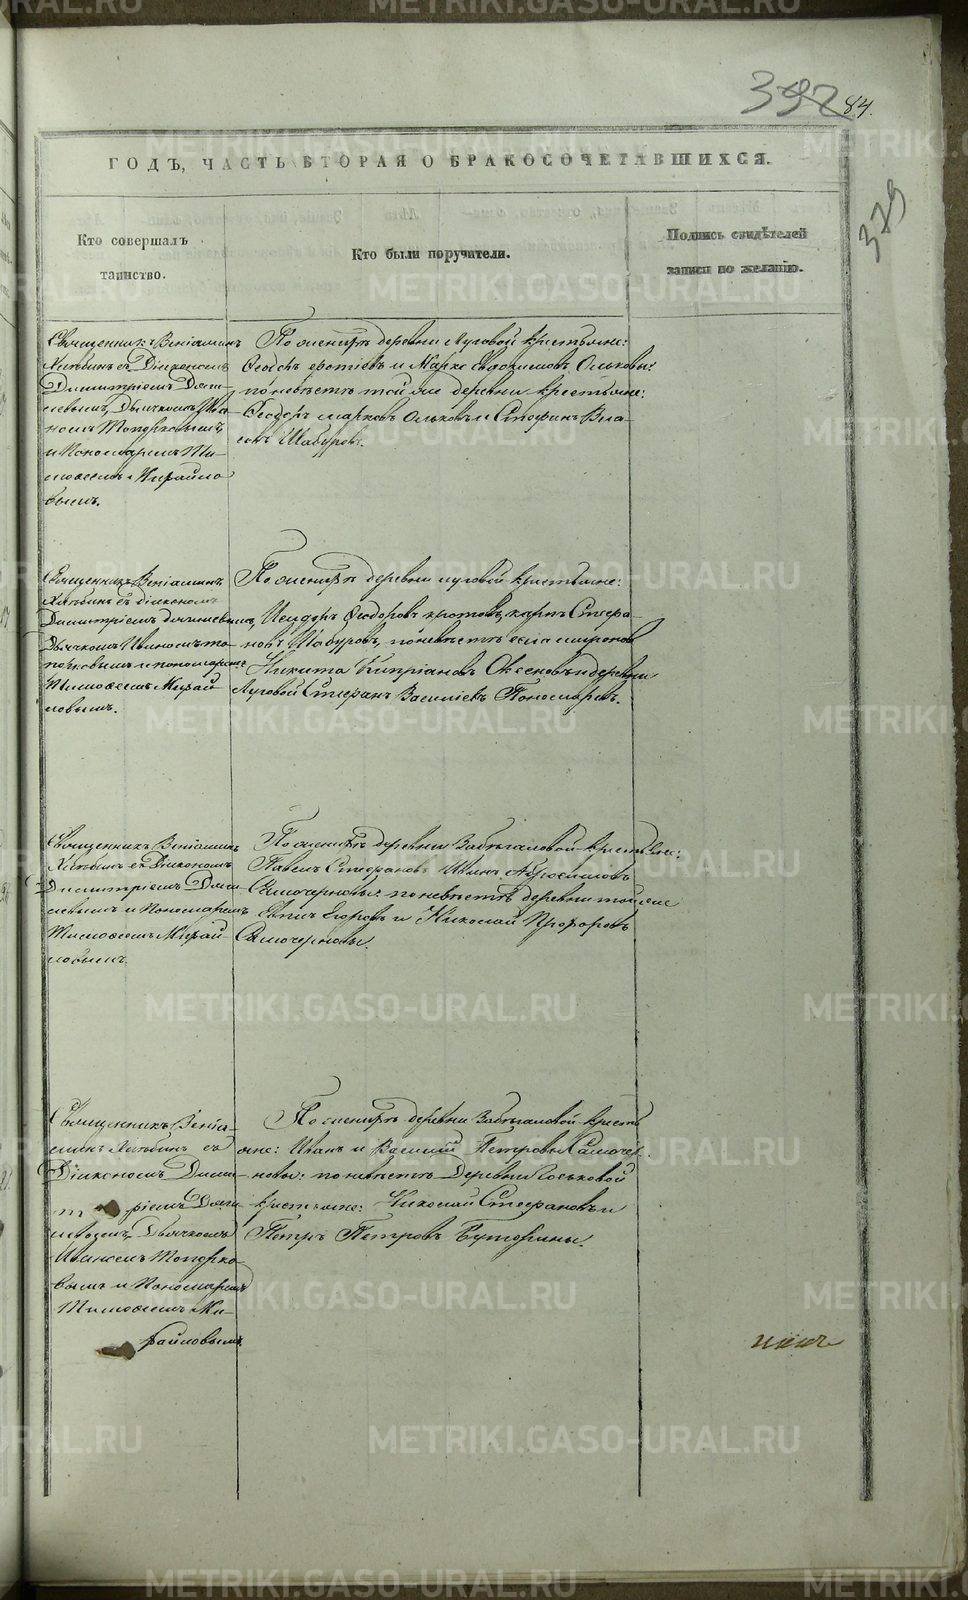 392 84.
379
ГОДЪ, ЧАСТЬ ВТОРАЯ О БРАКОСОЧЕТАВШИХСЯ.
Кто совершалъ
таинство.
Кто были поручители.
Подпись свидѣтелей
записи по желанію.
Священникъ Веніаминъ
Хлѣбинъ съ Діакономъ
Димитріемъ
Дьячкомъ Ива-
номъ Топорковымъ,
и Пономаремъ Ти-
моѳеемъ Михайло
вымъ.
По женихѣ деревни Луговой крестьяне:
и Марко Евдокимовъ Ольковы:
по невѣстѣ той же деревни крестьяне:
Ѳеодоръ Марковъ Ольковъ и Стефанъ Вла-
совъ Шабуровъ.
Священникъ Веніаминъ
Хлѣбинъ съ діакономъ
Димитріемъ
Дьячкомъ Иваномъ то-
порковымъ и пономаремъ
Тимоѳеемъ Михай
ловымъ.
По женихѣ деревни луговой крестьяне:
Ѳеодоровъ Стефа-
новъ Шабуровъ, по невѣстѣ села
Никита Кипріановъ и деревни
Луговой Стефанъ Василіевъ Пономаревъ.
Священникъ Веніаминъ
Хлѣбинъ съ Діакономъ
Димитріемъ
и Пономаремъ
Тимоѳеемъ Михай
ловымъ.
По женихѣ деревни крестьяне:
Павелъ Стефановъ Иванъ Абросимовъ
Самочерновы: по невѣстѣ деревни той же
Егоровъ и Николай Прохоровъ
Самочерновы.
Священникъ Веніа-
минъ Хлѣбинъ съ
Діакономъ Дими
тріемъ
Дьячкомъ
Иваномъ Топорко-
вымъ и Пономаремъ
Тимоѳеемъ Ми-
хайловымъ.
По женихѣ деревни кресть
яне: Иванъ и Василій Петровы Самочер-
новы: по невѣстѣ Деревни
крестьяне: Николай Стефановъ и
Петръ Петровъ Буторины.
METRIKI.GASO-URAL.RU